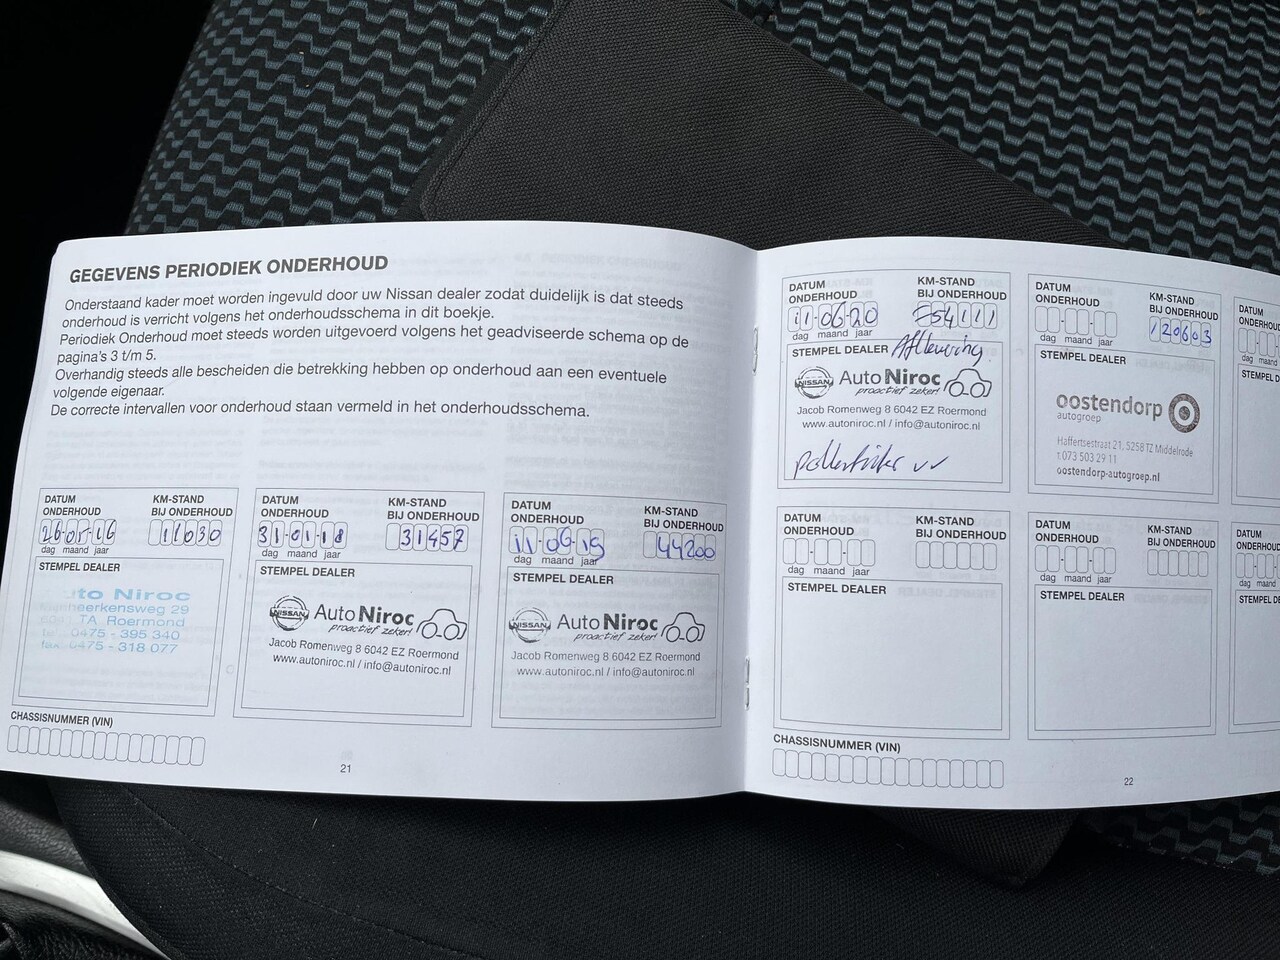 GEGEVENS PERIODIEK ONDERHOUD
Onderstaand kader moet worden ingevuld door uw Nissan dealer zodat duidelijk is dat steeds
onderhoud is verricht volgens het onderhoudsschema in dit boekje.
Periodiek Onderhoud moet steeds worden uitgevoerd volgens het geadviseerde schema op de
pagina's 3 t/m 5.
Overhandig steeds alle bescheiden die betrekking hebben op onderhoud aan een eventuele
volgende eigenaar.
De correcte intervallen voor onderhoud staan vermeld in het onderhoudsschema.
DATUM
ONDERHOUD
KM-STAND
BIJ ONDERHOUD
26-05-16
11030
dag maand jaar
STEMPEL DEALER
to Niroc
eerkensweg 29
TA Roermond
0475 - 395 340
0475 - 318 077
CHASSISNUMMER (VIN)
DATUM
ONDERHOUD
KM-STAND
BIJ ONDERHOUD
31-01-18
31457
dag maand jaar
STEMPEL DEALER
NISSAN
Auto Niroc
proactief zeker!
Jacob Romenweg 8 6042 EZ Roermond
www.autoniroc.nl / info@autoniroc.nl
DATUM
ONDERHOUD
KM-STAND
BIJ ONDERHOUD
11-06-19
44200
dag maand jaar
STEMPEL DEALER
NISSAN
Auto Niroc
proactief zeker!
Jacob Romenweg 8 6042 EZ Roermond
www.autoniroc.nl / info@autoniroc.nl
21
DATUM
ONDERHOUD
KM-STAND
BIJ ONDERHOUD
11-06-20
54111
dag maand jaar
STEMPEL DEALER Aflevering
NISSAN
Auto Niroc
proactief zeker!
Jacob Romenweg 8 6042 EZ Roermond
www.autoniroc.nl / info@autoniroc.nl
pollenfilter vv
DATUM
ONDERHOUD
KM-STAND
BIJ ONDERHOUD
120603
dag maand jaar
STEMPEL DEALER
oostendorp
autogroep
Haffertsestraat 21, 5258 TZ Middelrode
t 073 503 29 11
oostendorp-autogroep.nl
DATUM
ONDERHOUD
dag maand
STEMPEL D
DATUM
ONDERHOUD
KM-STAND
BIJ ONDERHOUD
dag maand jaar
STEMPEL DEALER
DATUM
ONDERHOUD
KM-STAND
BIJ ONDERHOUD
dag maand jaar
STEMPEL DEALER
DATUM
ONDERHOUD
dag maand
STEMPEL DE
CHASSISNUMMER (VIN)
22